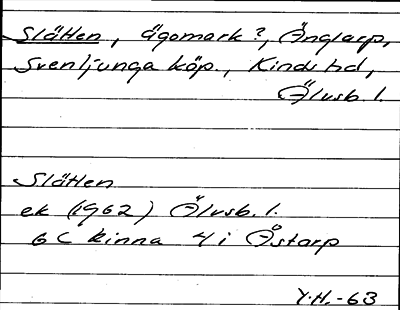 Slätten, ägomark?, Änglarp,
Svenljunga köp., Kinds hd,
Älvsb. l.
Slätten
ek (1962) Älvsb. l.
6 C Kinna 4 i Åstarp
Y.H.-63